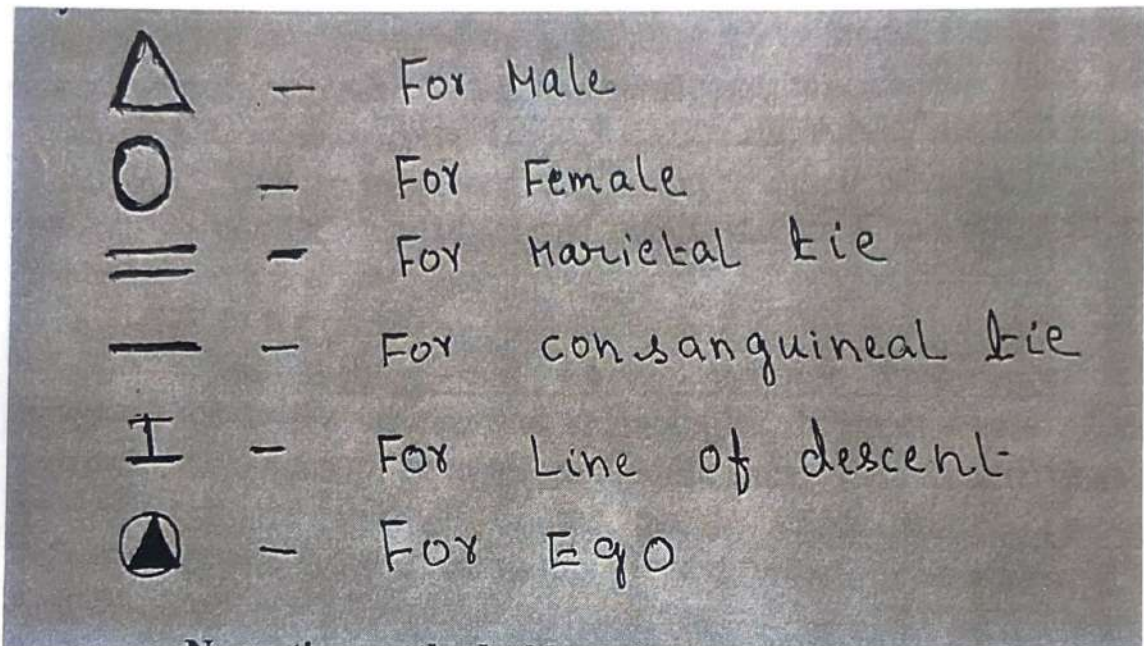 △ - For Male
○ - For Female
= - For Marietal tie
— - For consanguineal tie
I - For Line of descent
- For Ego